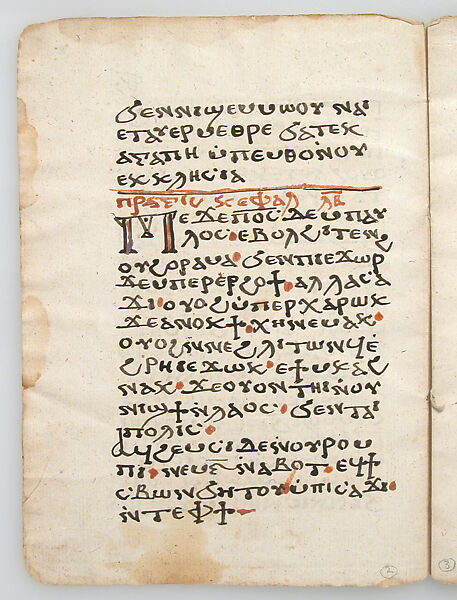 ϧⲉⲛⲛⲓϣⲉⲙⲙⲱⲟⲩ ⲛⲁⲓ
ⲉⲧⲁⲩⲉⲣⲙⲉⲑⲣⲉ ϧⲁⲧⲉⲕ
ⲁⲅⲁⲡⲏ ⲙ̀ⲡⲉⲙⲑⲟⲛ̀ⲟⲩ
ⲉⲕⲕⲗⲏⲥⲓⲁ
ⲡⲣⲁⲝⲓⲥ ⲕⲉⲫⲁⲗ ⲗ̅ⲃ̅
ⲡⲉϫⲉⲡⲟ̅ⲥ̅ ⲇⲉⲙ̀ⲡⲁⲩ
ⲗⲟⲥ· ⲉⲃⲟⲗϩⲓⲧⲉⲛ
ⲟⲩϩⲟⲣⲁⲙⲁ· ϧⲉⲛⲡⲓⲉϫⲱⲣϩ
ϫⲉⲙ̀ⲡⲉⲣⲉⲣϩⲟϯ· ⲁⲗⲗⲁⲥⲁ
ϫⲓ· ⲟⲩⲟϩ ⲙ̀ⲡⲉⲣⲭⲁⲣⲱⲕ
ϫⲉⲁⲛⲟⲕ ϯⲭⲏⲛⲉⲙⲁⲕ·
ⲟⲩⲟϩ ⲛ̀ⲛⲉϩⲗⲓⲧⲱⲛϥ ⲉ̀
ϩⲣⲏⲓⲉϫⲱⲕ· ⲉϯⲙⲕⲁϩ
ⲛⲁⲕ· ϫⲉⲟⲩⲟⲛⲧⲏⲓⲛ̀ⲟⲩ
ⲛⲓϣϯⲛ̀ⲗⲁⲟⲥ· ϧⲉⲛⲧⲁⲓ
ⲡⲟⲗⲓⲥ·
ⲁϥϩⲉⲙⲥⲓⲇⲉⲛ̀ⲟⲩⲣⲟⲙ
ⲡⲓ· ⲛⲉⲙⲋ̅ⲛⲁⲃⲟⲧ· ⲉϥϯ
ⲥⲃⲱⲛ̀ϧⲏⲧⲟⲩ ⲙ̀ⲡⲓⲥⲁϫⲓ·
ⲛ̀ⲧⲉⲫϯ
2
3